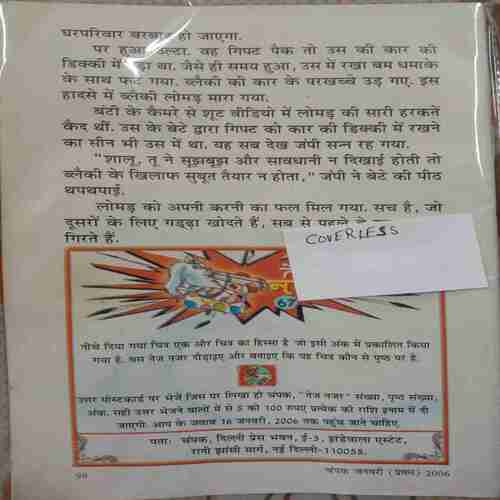 घरपरिवार बरबाद हो जाएगा.
पर हुआ उल्टा. वह गिफ्ट पैक तो उस की कार की
डिक्की में पड़ा था. जैसे ही समय हुआ, उस में रखा बम धमाके
के साथ फट गया. ब्लैकी की कार के परखच्चे उड़ गए. इस
हादसे में ब्लैकी लोमड़ मारा गया.
बंटी के कैमरे से शूट वीडियो में लोमड़ की सारी हरकतें
कैद थीं. उस के बेटे द्वारा गिफ्ट को कार की डिक्की में रखने
का सीन भी उस में था. यह सब देख जंपी सन्न रह गया.
"शालू, तू ने सूझबूझ और सावधानी न दिखाई होती तो
ब्लैकी के खिलाफ सुबूत तैयार न होता," जंपी ने बेटे की पीठ
थपथपाई.
लोमड़ को अपनी करनी का फल मिल गया. सच है, जो
दूसरों के लिए गड्ढा खोदते हैं, सब से पहले
गिरते हैं.
COVERLESS
67
नीचे दिया गया चित्र एक और चित्र का हिस्सा है जो इसी अंक में प्रकाशित किया
गया है. बस तेज नजर दौड़ाइए और बताइए कि यह चित्र कौन से पृष्ठ पर है.
उत्तर पोस्टकार्ड पर भेजें जिस पर लिखा हो चंपक, "तेज नजर" संख्या, पृष्ठ संख्या,
अंक. सही उत्तर भेजने वालों में से 5 को 100 रुपए प्रत्येक की राशि इनाम में दी
जाएगी. आप के जवाब 16 जनवरी, 2006 तक पहुंच जाने चाहिए.
पता: चंपक, दिल्ली प्रेस भवन, ई-3, झंडेवाला एस्टेट,
रानी झांसी मार्ग, नई दिल्ली-110055.
98 चंपक जनवरी (प्रथम) 2006